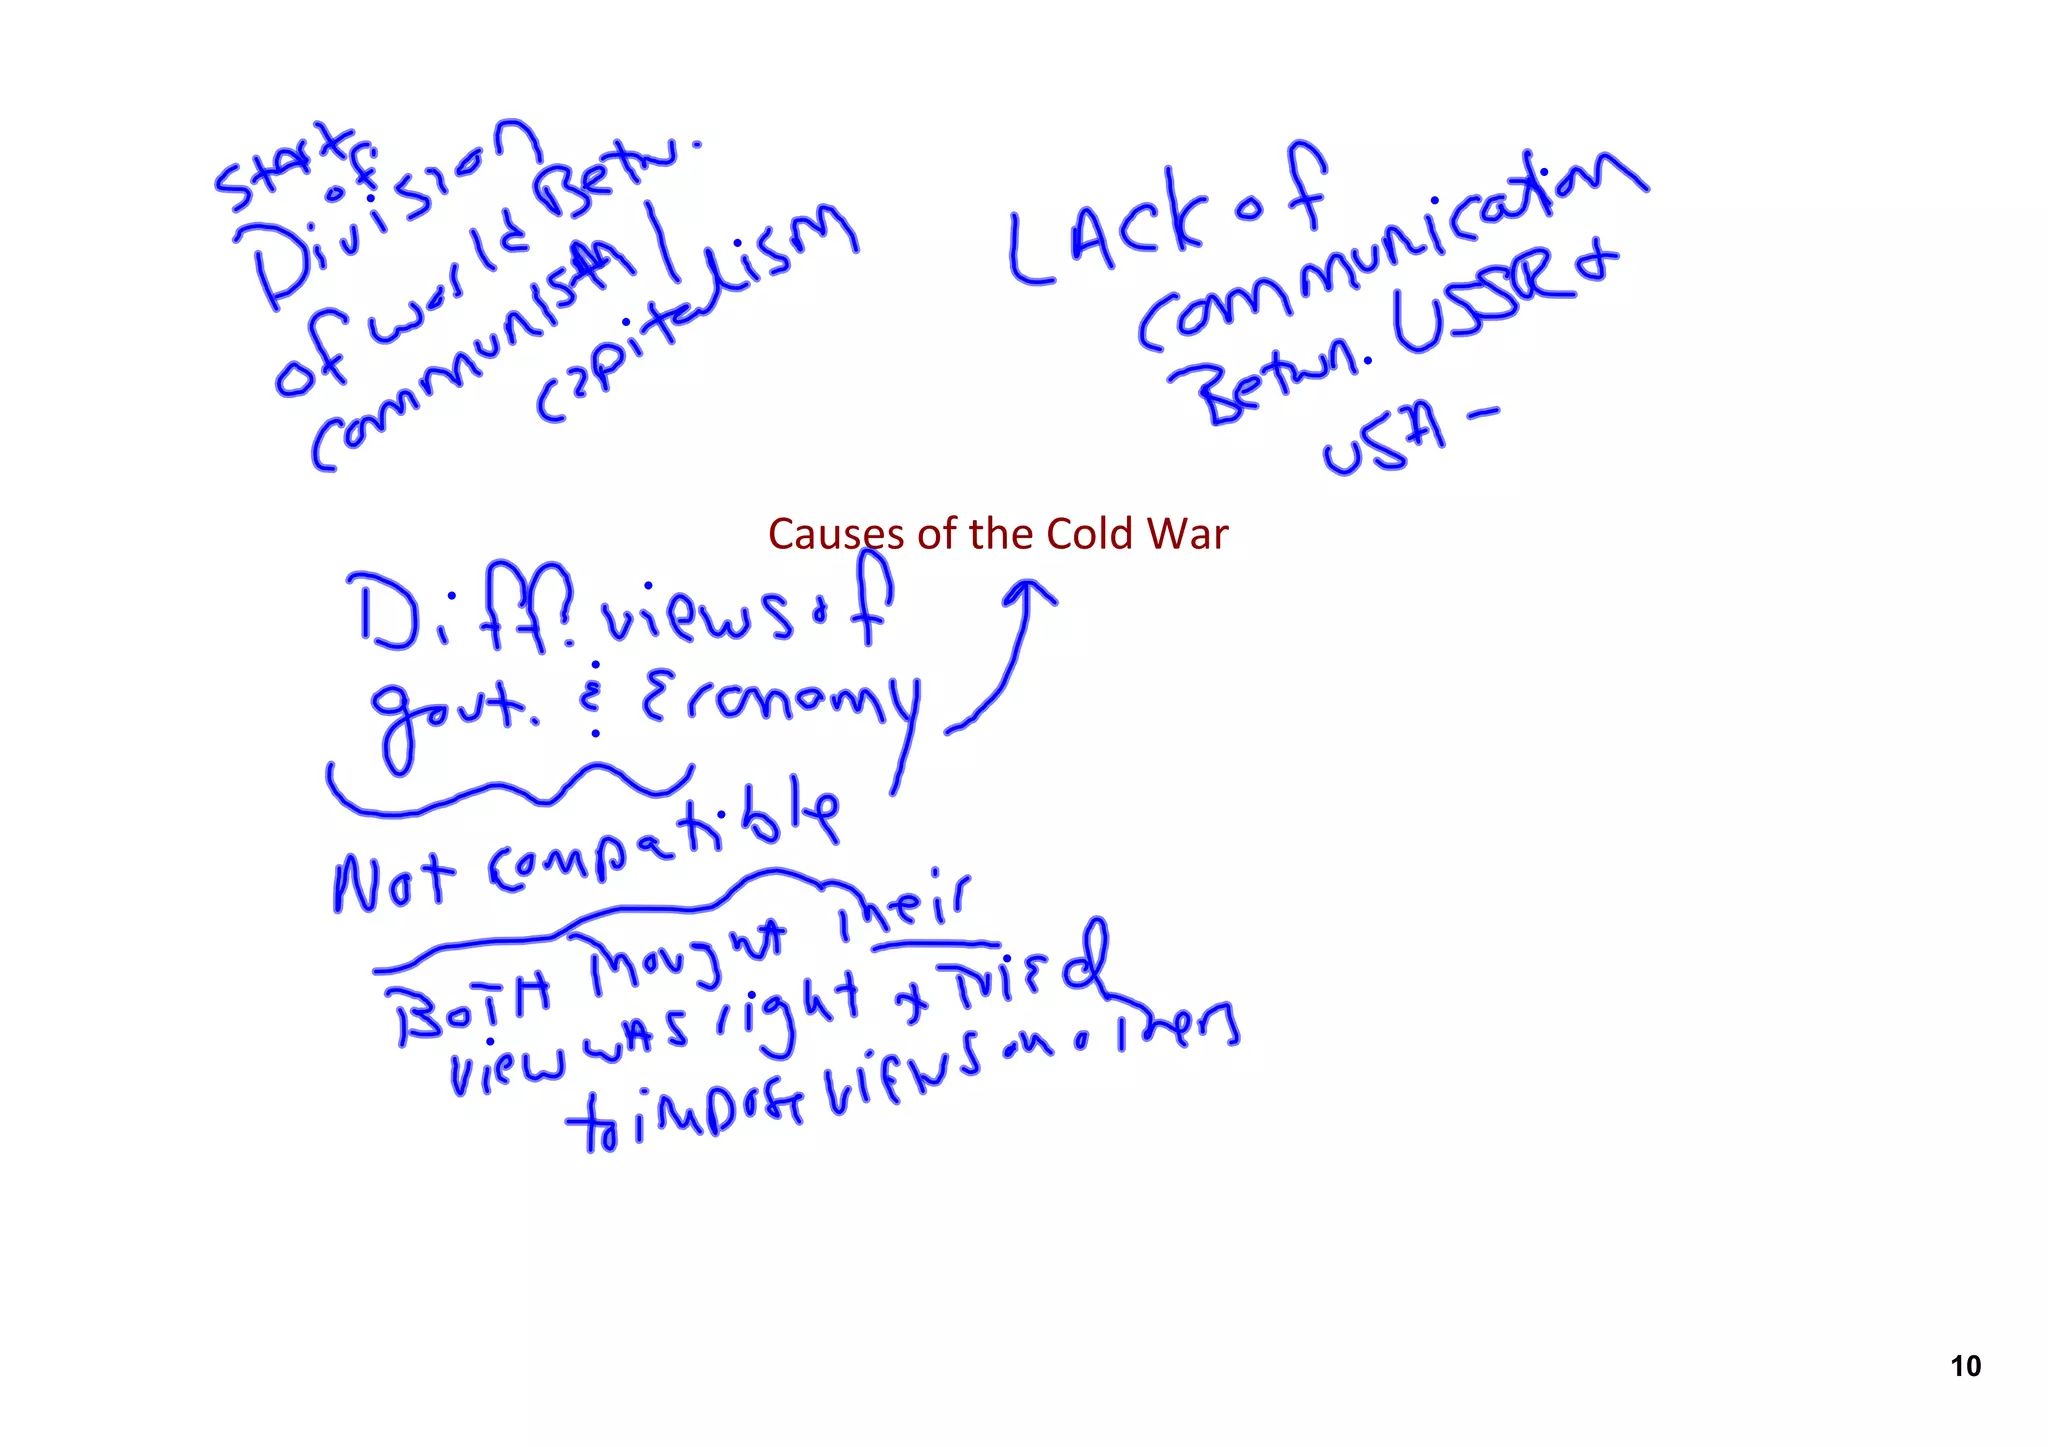 Start of
Division
of world Betw.
communism/
capitalism
LAck of
communication
Betwn. USSR &
USA -
Causes of the Cold War
Diff. views of
govt. & Economy
Not compatible
BoTH Thought Their
view wAs right & Tried
to impose views on others
10